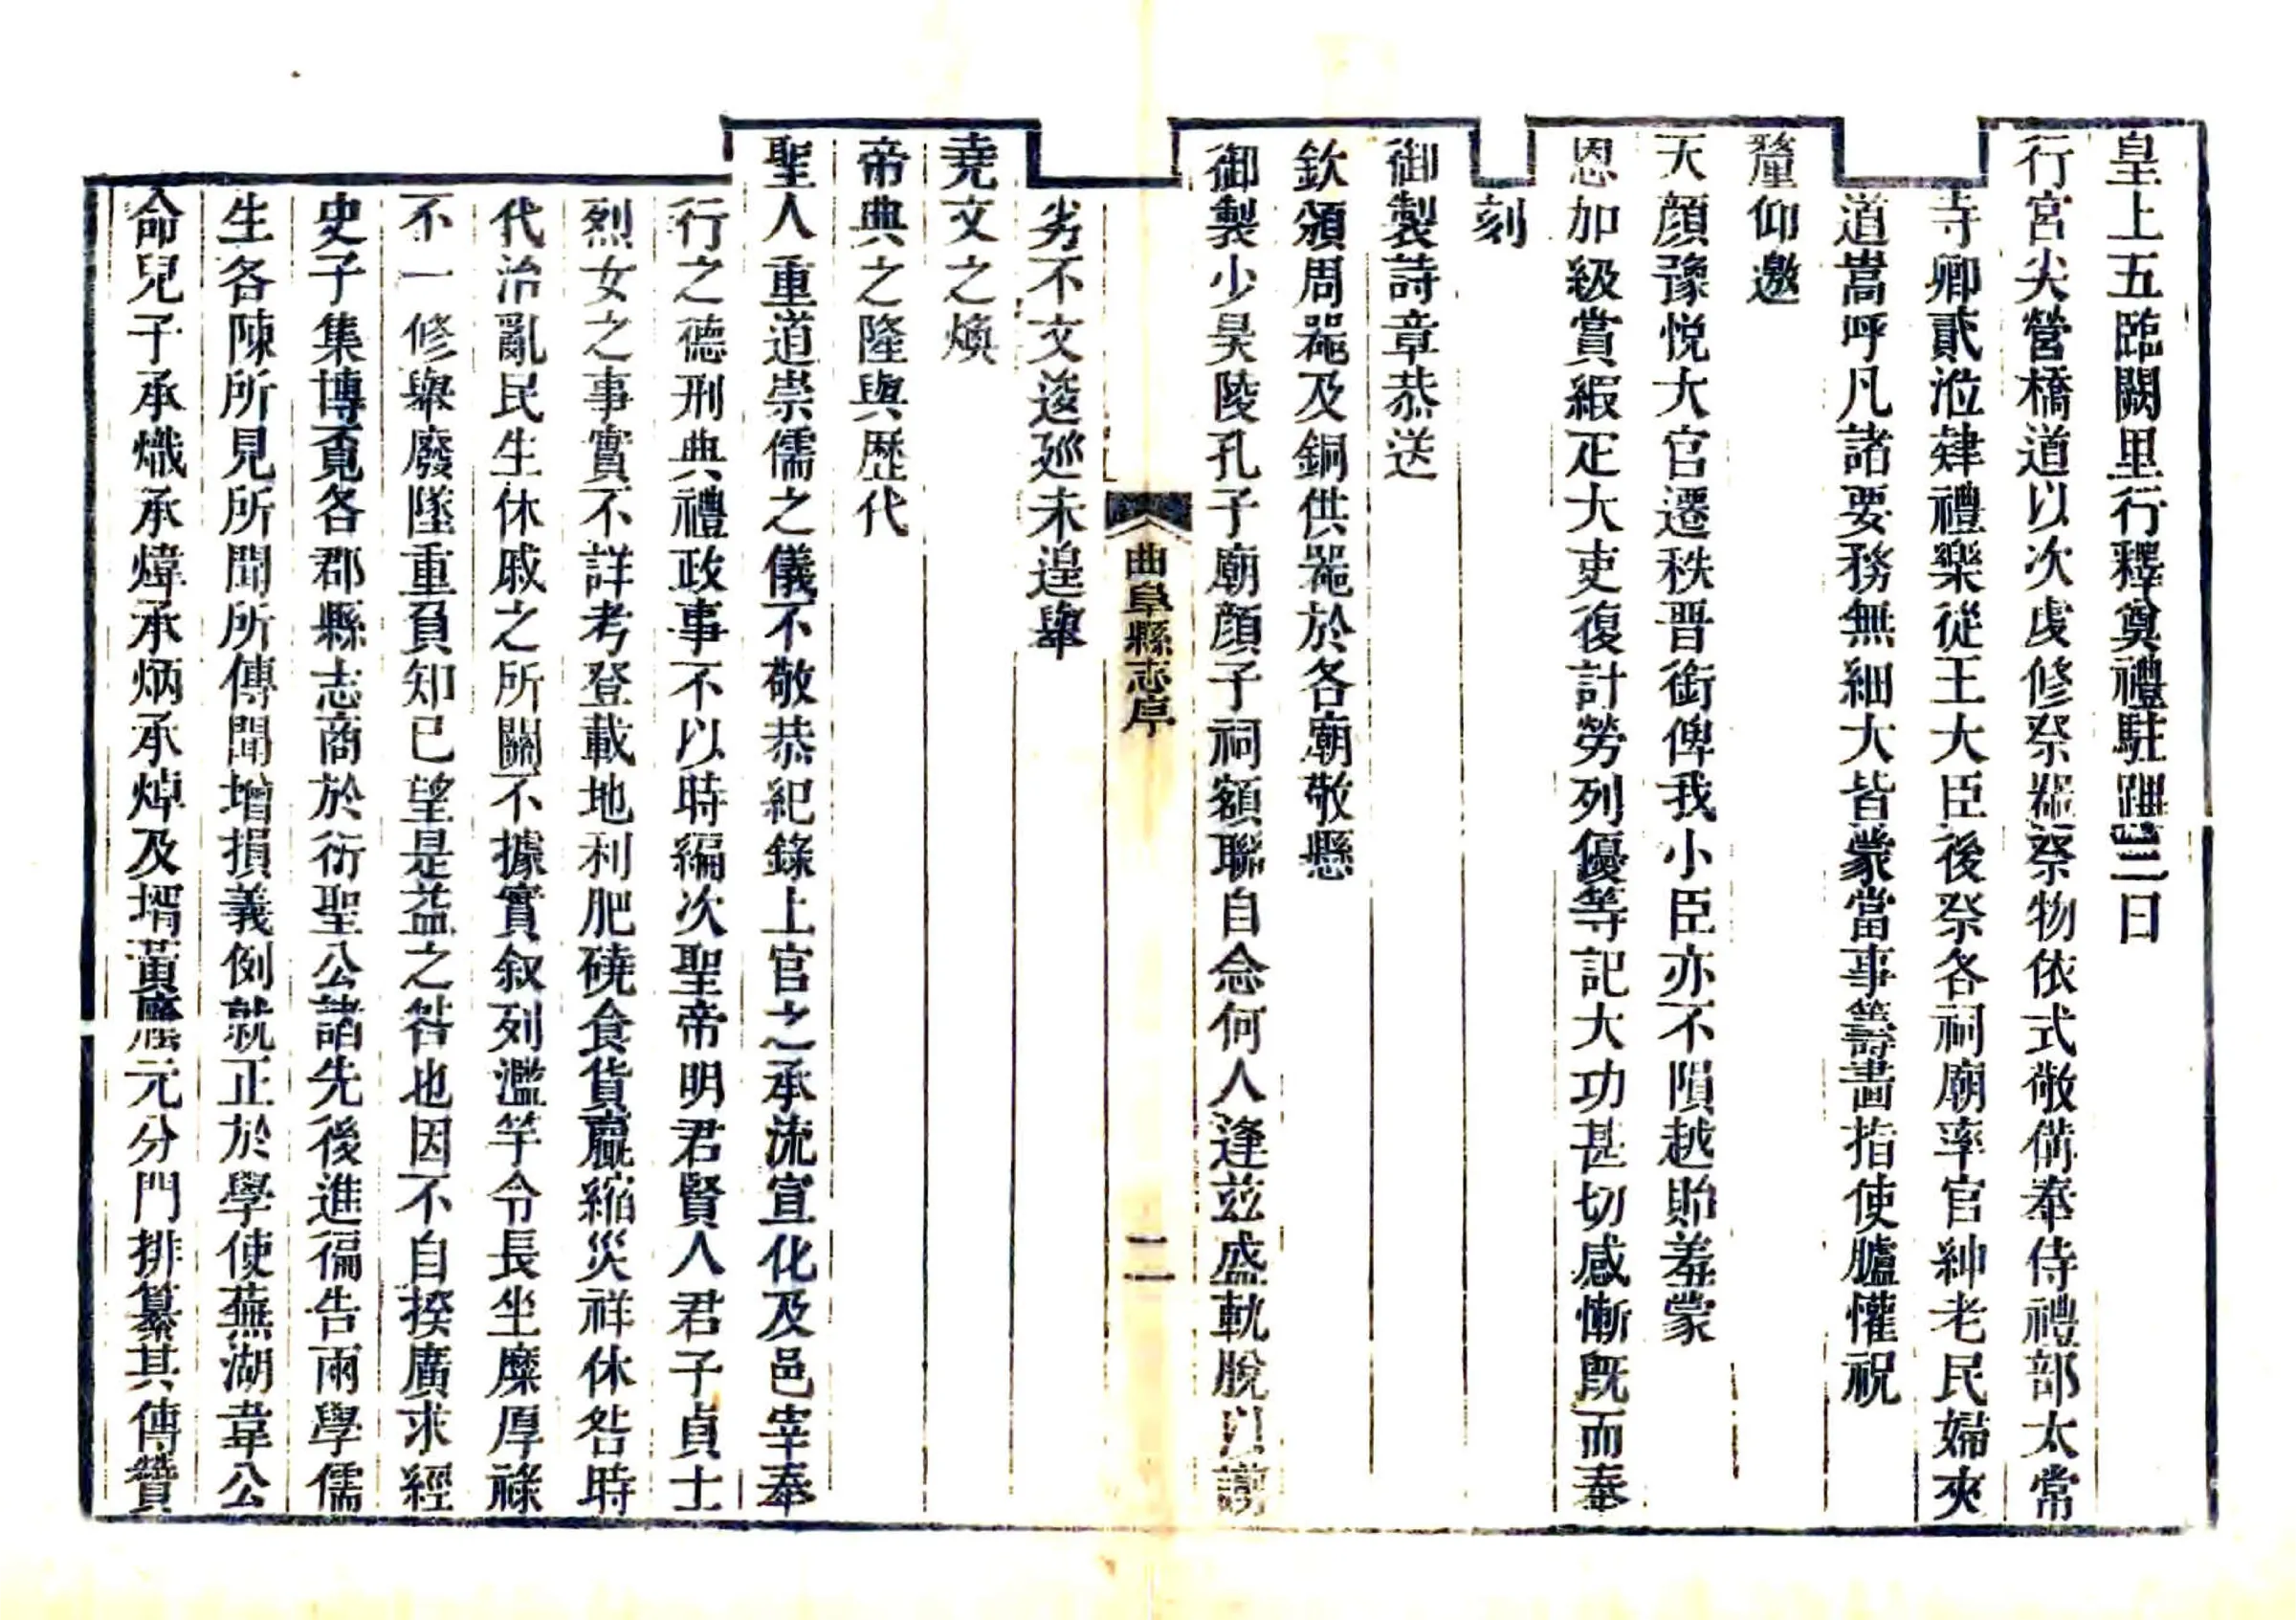 皇上五臨闕里行釋奠禮駐蹕三日
行宮尖營橋道以次虔修祭器祭物依式敬備奉侍禮部太常
寺卿貳涖肄禮樂從王大臣後祭各祠廟率官紳老民婦夾
道嵩呼凡諸要務無細大皆蒙當事籌畫指使臚懽祝
釐仰邀
天顔豫悦大官遷秩晋銜俾我小臣亦不隕越貽羞蒙
恩加級賞緞疋大吏復計勞列優等記大功甚切感慚旣而奉
刻
御製詩章恭送
欽頒周噐及銅供噐於各廟敬懸
御製少昊陵孔子廟顔子祠額聯自念何人逢兹盛軌脫以譾
曲阜縣志序
二
劣不文逡廵未遑肇
堯文之煥
帝典之隆與歷代
聖人重道崇儒之儀不敬恭紀錄上官之承流宣化及邑宰奉
行之德刑典禮政事不以時編次聖帝明君賢人君子貞士
烈女之事實不詳考登載地利肥磽食貨贏縮災祥休咎時
代治亂民生休戚之所關不據實叙列濫竽令長坐糜厚祿
不一修舉廢墜重負知已望是益之咎也因不自揆廣求經
史子集博覔各郡縣志商於衍聖公諸先後進徧告兩學儒
生各陳所見所聞所傳聞增損義例就正於學使蕪湖韋公
命兒子承熾承煒承炳承焯及壻黃應元分門排纂其傳贊